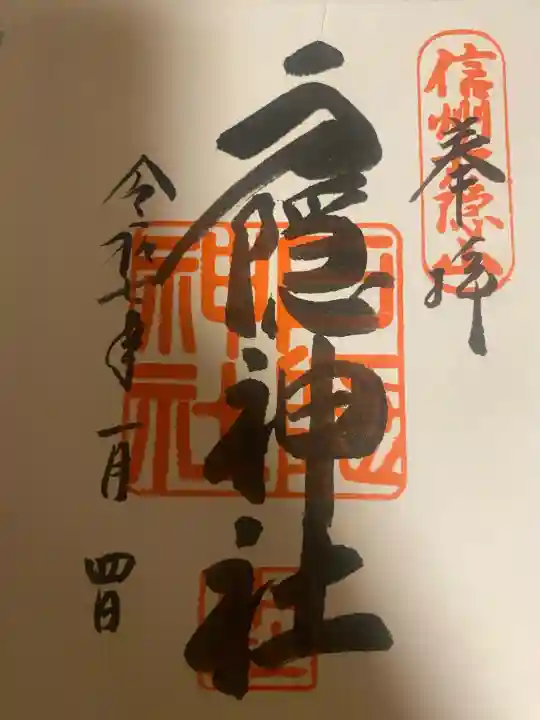 信州戸隠山
奉拝
戸隠神社
戸隠神社
令和
年
一月
四日